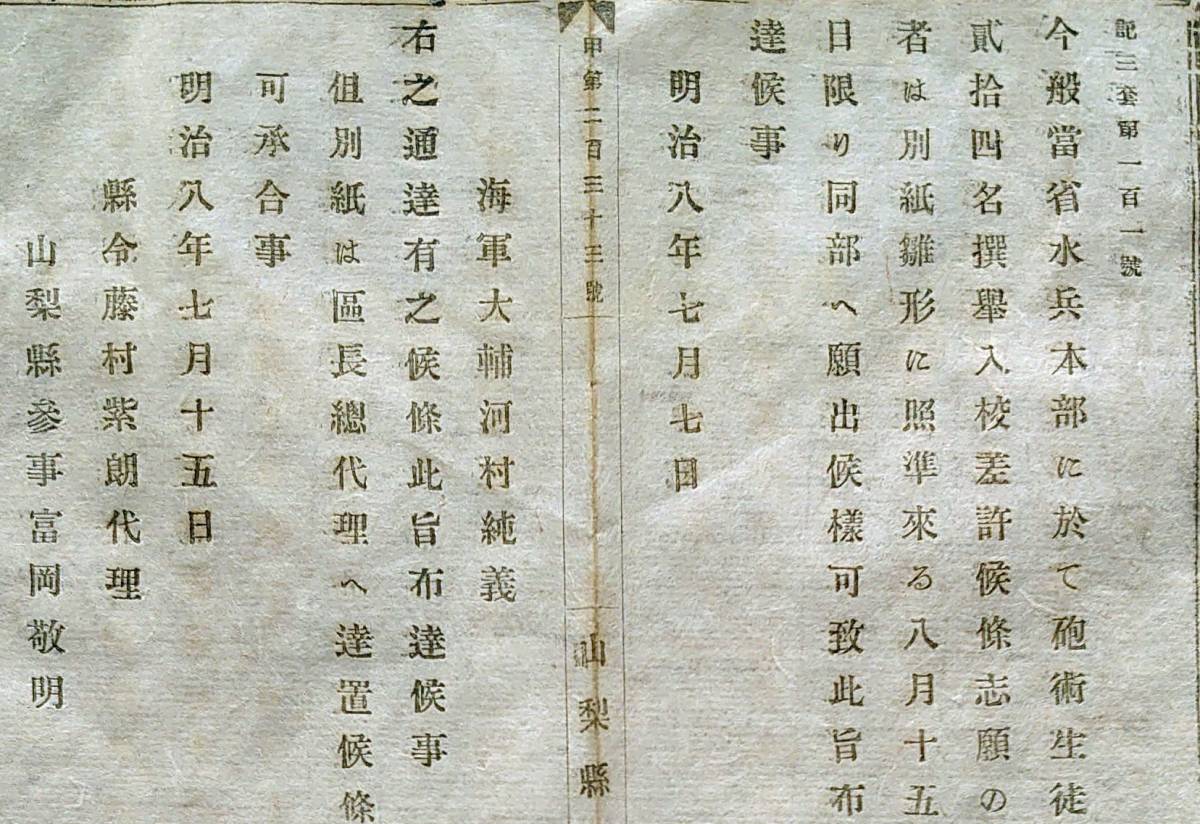 記三套第一百一號
今般當省水兵本部に於て砲術生徒
貳拾四名撰舉入校差許候條志願の
者は別紙雛形に照準來る八月十五
日限り同部へ願出候樣可致此旨布
達候事
明治八年七月七日
甲第二百三十三號
山梨縣
海軍大輔河村純義
右之通達有之候條此旨布達候事
但別紙は區長總代理へ達置候條
可承合事
明治八年七月十五日
縣令藤村紫朗代理
山梨縣參事富岡敬明